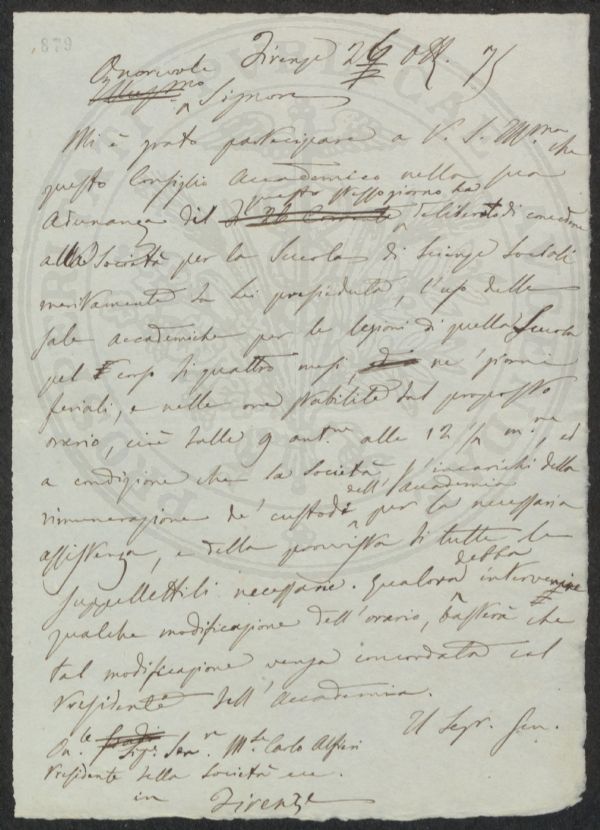 879
Firenze 26 Ott. 75
Onorevole
Illussmo Signore
Mi è grato partecipare a V. S. Illma che
questo Consiglio Accademico nella sua
questo stesso giorno, ha
Adunanza del deliberato di concedere
alla Società per la Scuola di Scienze Sociali
meritamente da Lei presieduta, l'uso delle
sale accademiche per le lezioni di quella Scuola
pel corso di quattro mesi, ne' giorni
feriali, e nelle ore stabilite dal proposto
orario, cioè dalle 9 antme alle 12 1/2 mne, ed
a condizione che la Società s'incarichi della
dell'Accademia
rimunerazione de' custodi per la necessaria
assistenza, e della provvista di tutte le
suppellettili necessarie. Qualora debba intervenire
qualche modificazione dell'orario, basterà che
tal modificazione venga concordata col
Presidente dell'Accademia.
Il Segr. Gen.
On.le Sigr. Senre Mse Carlo Alfieri
Presidente della Società ecc.
in Firenze